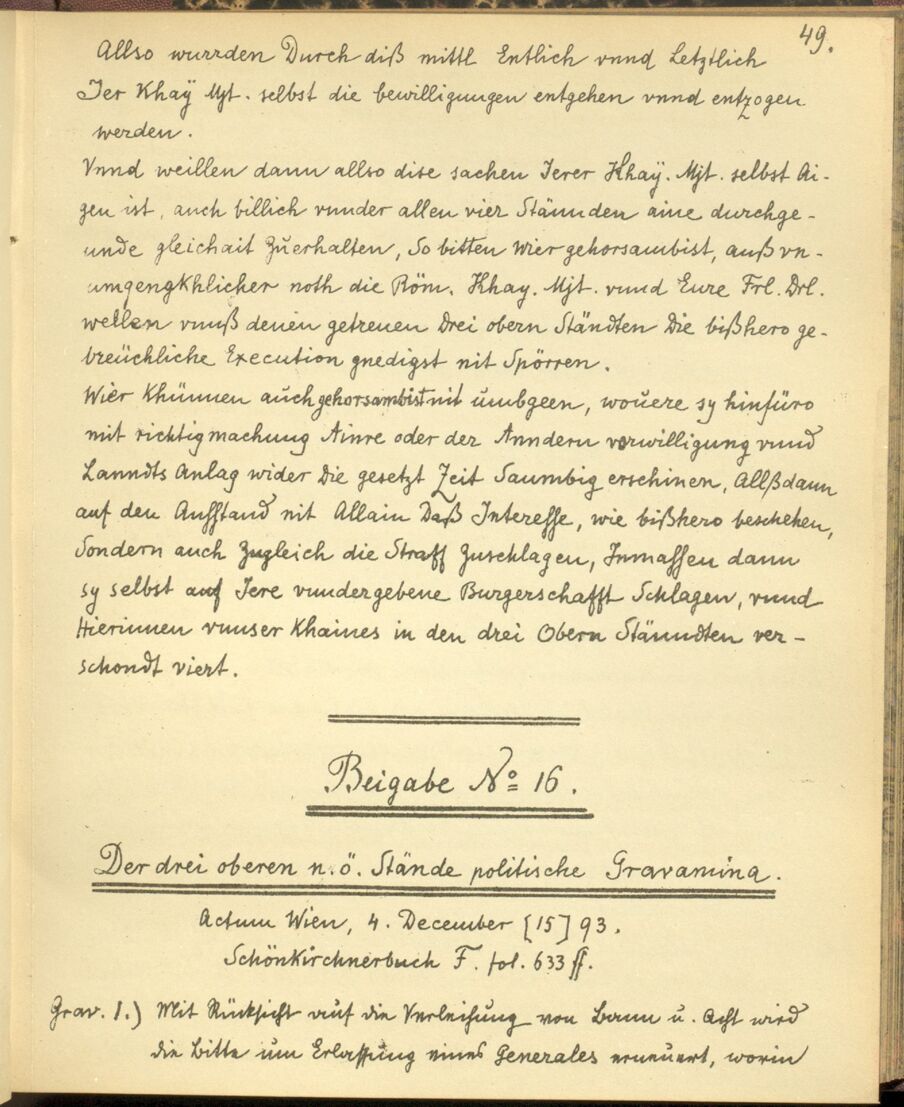 49.
Allso wurrden Durch diß mittl Entlich vnnd Letztlich
Jer Khaÿ Mjt. selbst die bewilligungen entgehen vnnd entzogen
werden.
Vnnd weillen dann allso dise sachen Jerer Khaÿ. Mjt. selbst Ai-
gen ist, auch billich vnnder allen vier Stännden aine durchge-
unde gleichait Zuerhalten, So bitten wier gehorsambist, auß vn-
umgengkhlicher noth die Röm. Khay. Mjt. vnnd Eure Frl. Drl.
wellen vnnß denen getreuen Drei obern Ständten Die bißhero ge-
breüchliche Execution gnedigst nit Spörren.
Wier Khünnen auch gehorsambist nit umbgeen, wouere sy hinfüro
mit richtigmachung Ainre oder der Anndern verwilligung vnnd
Lanndts Anlag wider Die gesetzt Zeit Saumbig erschinen, Allßdann
auf den Aufstand nit Allain Daß Interesse, wie bißhero beschehen,
Sondern auch Zugleich die Straff Zuschlagen, Inmassen dann
sy selbst auf Jere vnndergebene Burgerschafft Schlagen, vnnd
Hierinnen vnnser Khaines in den drei Obern Stänndten ver-
schondt viert.
Beigabe No 16.
Der drei oberen n.ö. Stände politische Gravamina.
Actum Wien, 4. December [15]93.
Schönkirchnerbuch F. fol. 633 ff.
Grav. 1.) Mit Rücksicht auf die Verleihung von Bann u. Acht wird
die Bitte um Erlassung eines Generales erneuert, worin